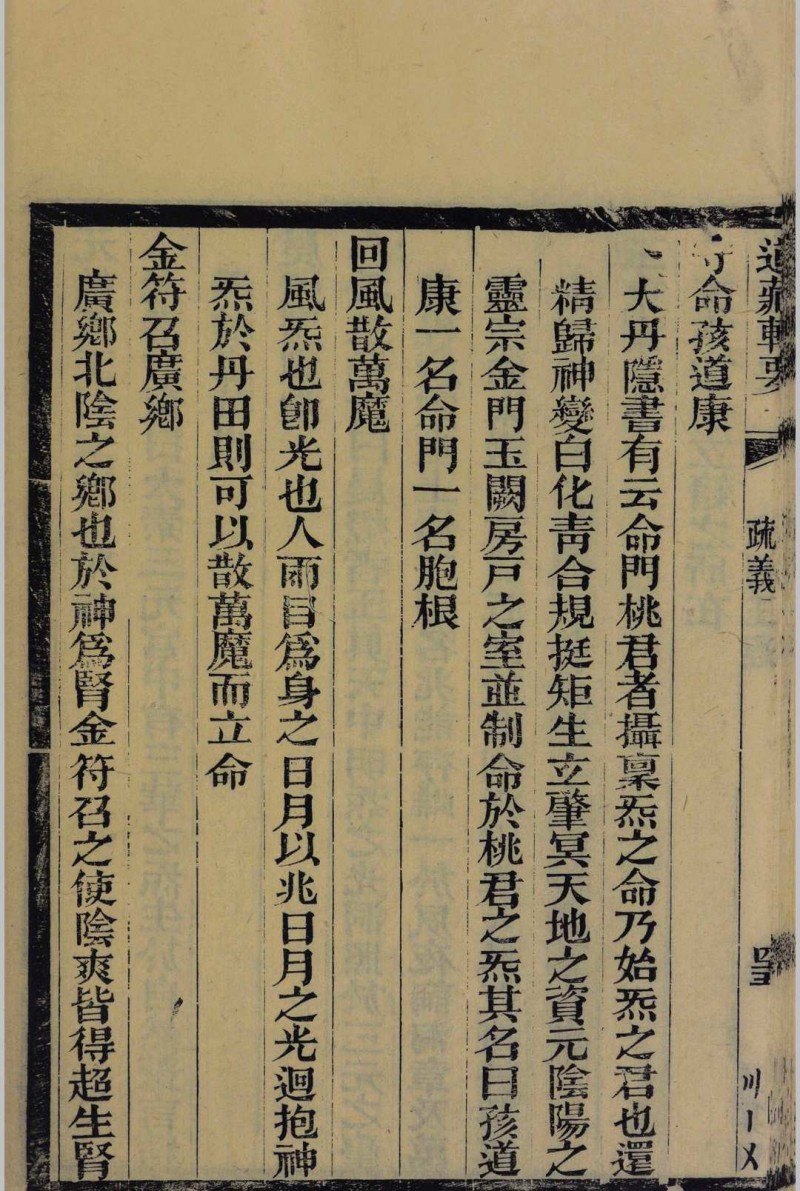 道藏輯要
疏義
命孩道康
大丹隱書有云命門桃君者攝稟炁之命乃始炁之君也還
精歸神變白化青合規挺矩生立肇冥天地之資元陰陽之
靈宗金門玉闕房戸之室並制命於桃君之炁其名曰孩道
康一名命門一名胞根
回風散萬魔
風炁也卽光也人兩目爲身之日月以兆日月之光迴抱神
炁於丹田則可以散萬魔而立命
金符召廣鄉
廣鄉北陰之鄉也於神爲腎金符召之使陰爽皆得超生腎